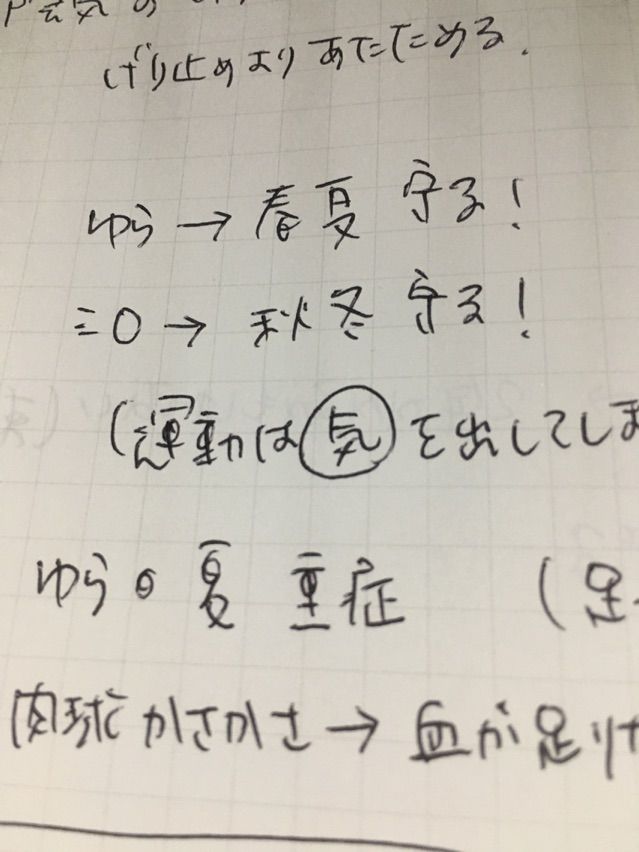 げり止めよりあたためる.
ゆら→春夏守る!
ミロ→秋冬守る!
(運動は気を出してしま
ゆらの夏 重症 (足
肉球かさかさ→血が足りけ